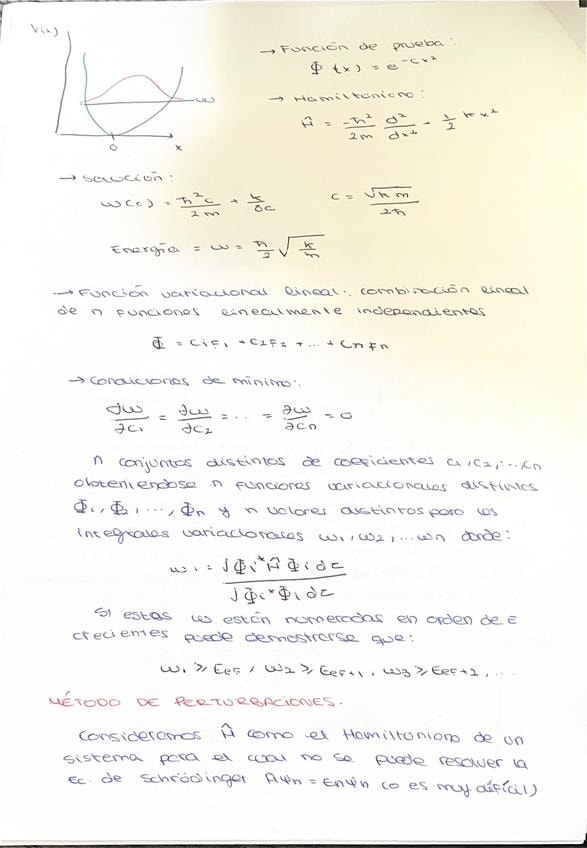 V(x)
→ Función de prueba:
Φ(x) = e^-cx²
→ Hamiltónicno:
Ĥ = -ħ²/2m d²/dx² + 1/2 k x²
w
0
x
→ Solución:
w(c) = ħ²c/2m + k/8c    c = √km/2ħ
Energía = w = ħ/2 √k/m
→ Función variacional lineal: combinación lineal
de n funciones linealmente independientes
Φ = C₁F₁ + C₂F₂ + ... + CnFn
→ Condiciones de mínimo:
∂w/∂c₁ = ∂w/∂c₂ = ... = ∂w/∂cn = 0
n conjuntos distintos de coeficientes c₁, c₂, ..., cn
obteniéndose n funciones variacionales distintas
Φ₁, Φ₂, ..., Φn y n valores distintos para las
integrales variacionales w₁, w₂, ... wn donde:
wi = ∫Φi* Ĥ Φi dτ / ∫Φi* Φi dτ
Si estas ws están numeradas en orden de E
crecientes puede demostrarse que:
w₁ ≥ EEF, w₂ ≥ EEF+1, w₃ ≥ EEF+2, ...
MÉTODO DE PERTURBACIONES.
Consideramos Ĥ como el Hamiltoniano de un
sistema para el cual no se puede resolver la
Ec. de Schrödinger Ĥψn = Enψn (o es muy difícil)